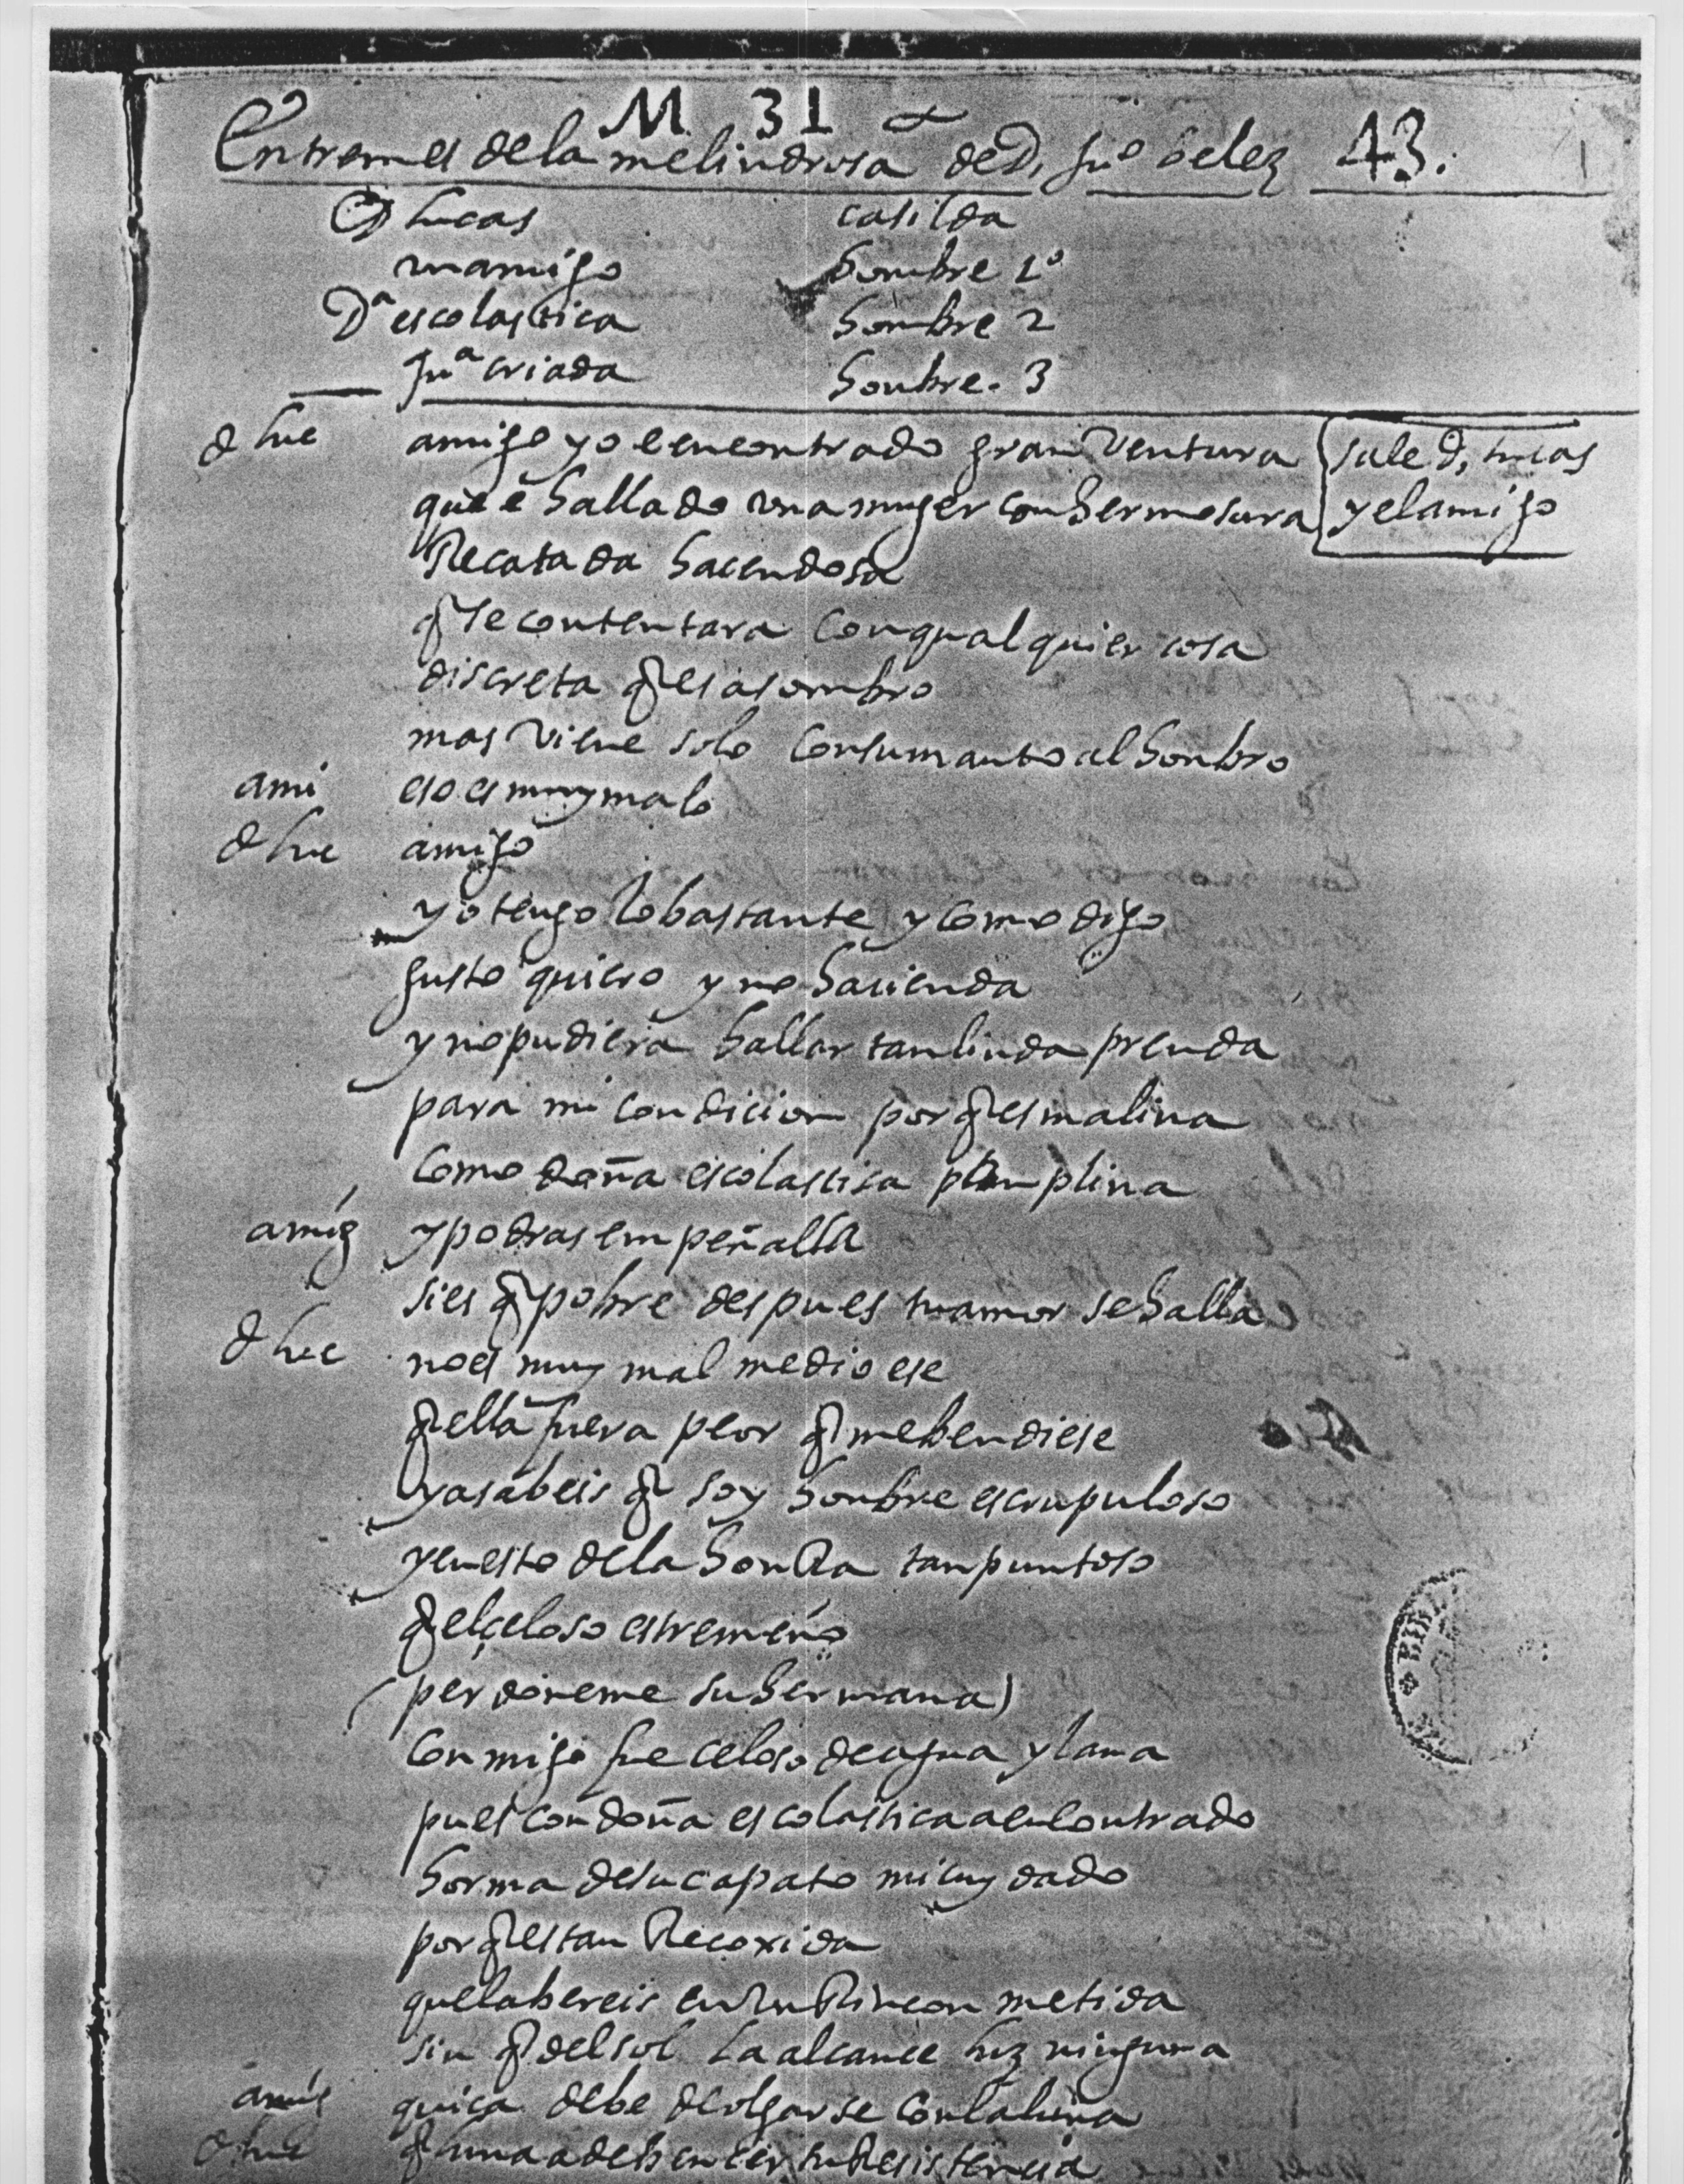 M 31
Entremes de la melindrosa de D, Juº belez 43.
D Lucas casilda
un amigo hombre 1º
Dª escolastica hombre 2
Juª criada hombre. 3
d luc amigo yo e encontrado gran ventura sale d, lucas
que e hallado una muger con hermosura y el amigo
Recatada hacendosa
q se contentara con qualquier cosa
discreta q es asombro
mas viene solo con su manto al honbro
ami eso es muy malo
d luc amigo
yo tengo lo bastante y como digo
gusto quiero y no hacienda
y no pudiera hallar tan linda prenda
para mi condicion por q es malina
como doña escolastica planplina
amig y podras empeñalla
si es q pobre despues tu amor se halla
d luc no es muy mal medio ese
q ella fuera peor q me bendiese
ya sabeis q soy honbre escrupuloso
y en esto de la honRa tan puntoso
q el çeloso estremeño
(perdoneme su hermana)
conmigo fue celoso de agua y lana
pues con doña escolastica a encontrado
horma de su capato mi cuydado
por q es tan Recoxida
que la bereis en un Rincon metida
sin q del sol la alcance luz ninguna
amig quiça debe de olgarse con la luna
d luc q luna a de bencer su Resistencia
BIB